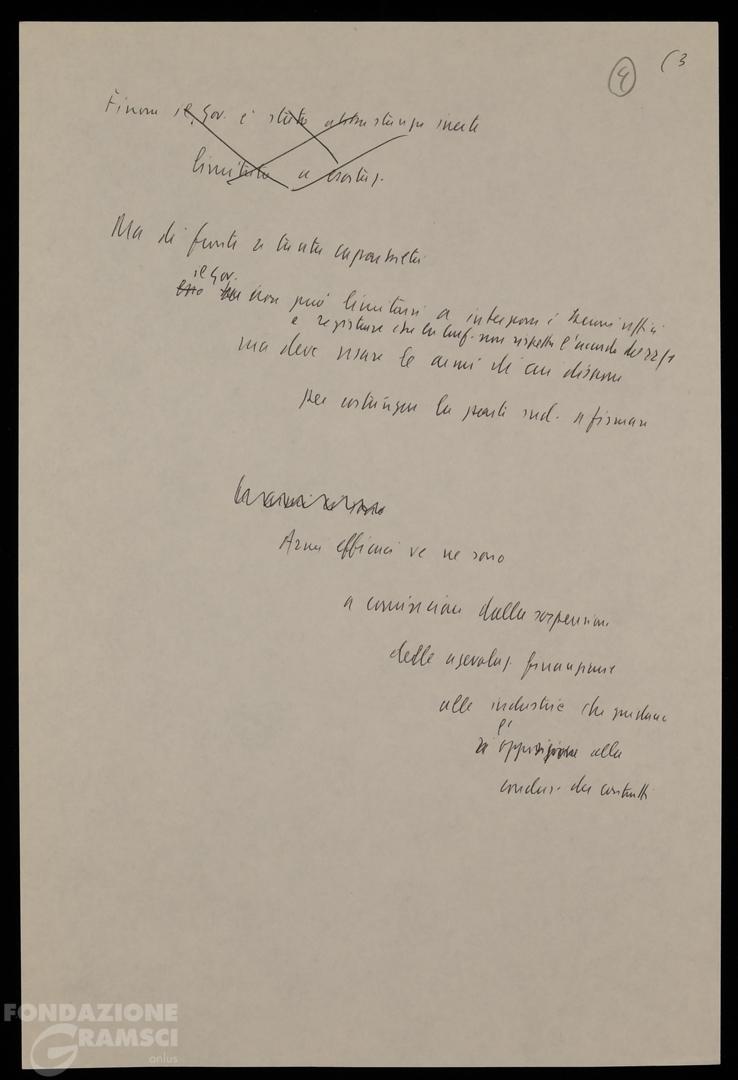 4 (3
Finora il Gov. è stato abbastanza inerte
limitato a esortaz.
Ma di fronte a tanta caparbietà
il Gov.
esso non può limitarsi a interporre i buoni uffici
e registrare che la Conf. non rispetta l'accordo del 22/1
ma deve usare le armi di cui dispone
per costringere la parte ind. a firmare
Armi efficaci ve ne sono
a cominciare dalla sospensione
delle agevolaz. finanziarie
alle industrie che guidano
l'
opposizione alla
conclus. dei contratti
FONDAZIONE
GRAMSCI
onlus